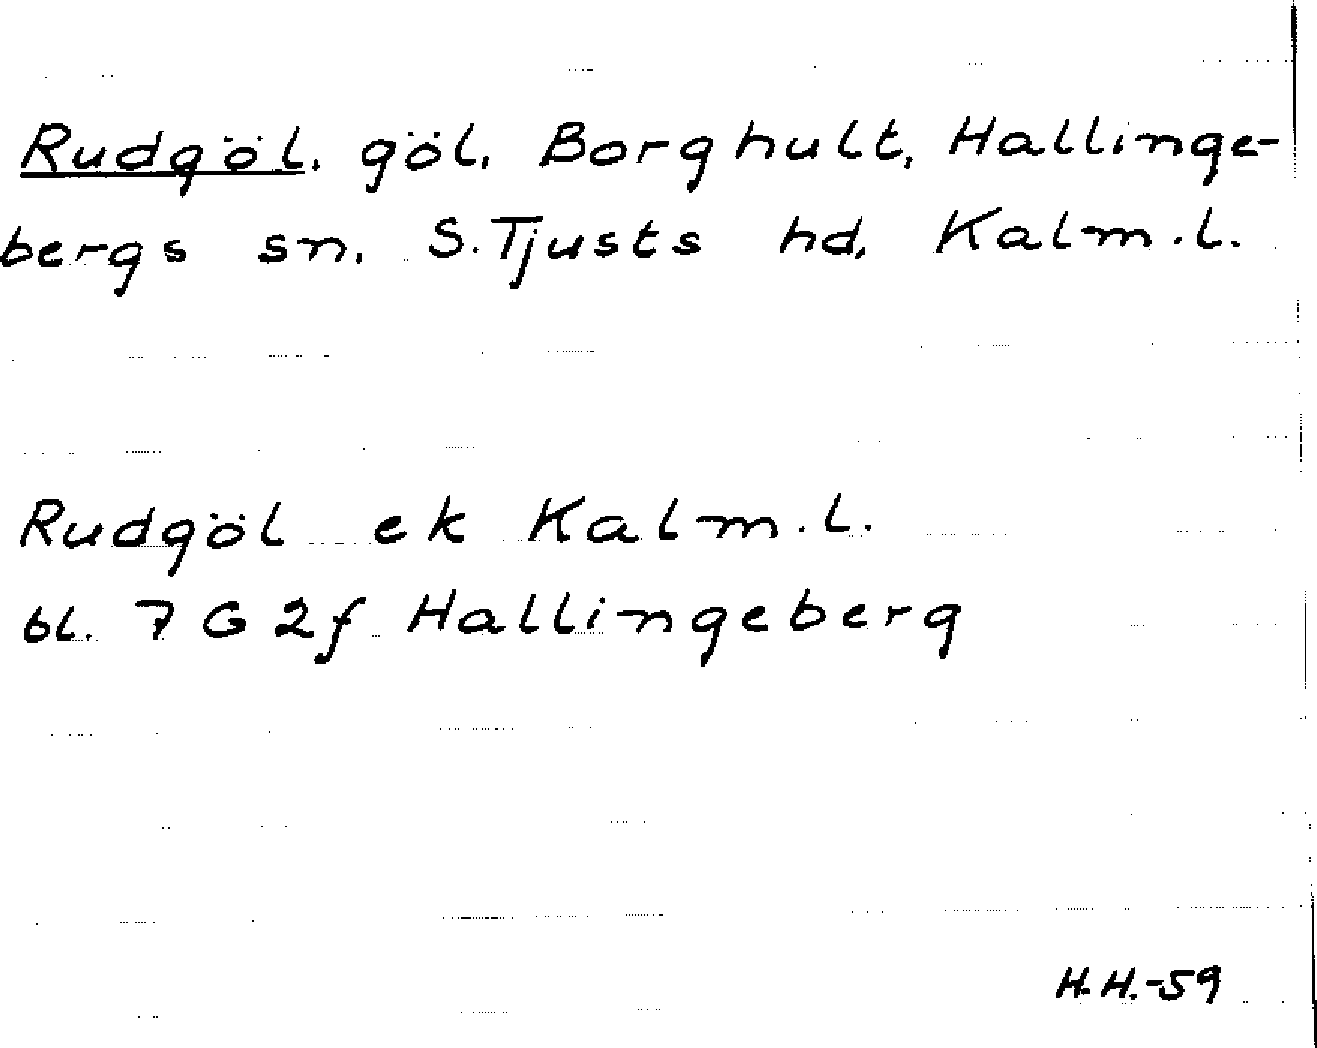 Rudgöl, göl, Borghult, Hallinge-
bergs sn, S. Tjusts hd, Kalm. l.
Rudgöl ek Kalm. l.
bl. 7 G 2f Hallingeberg
H.H.-59